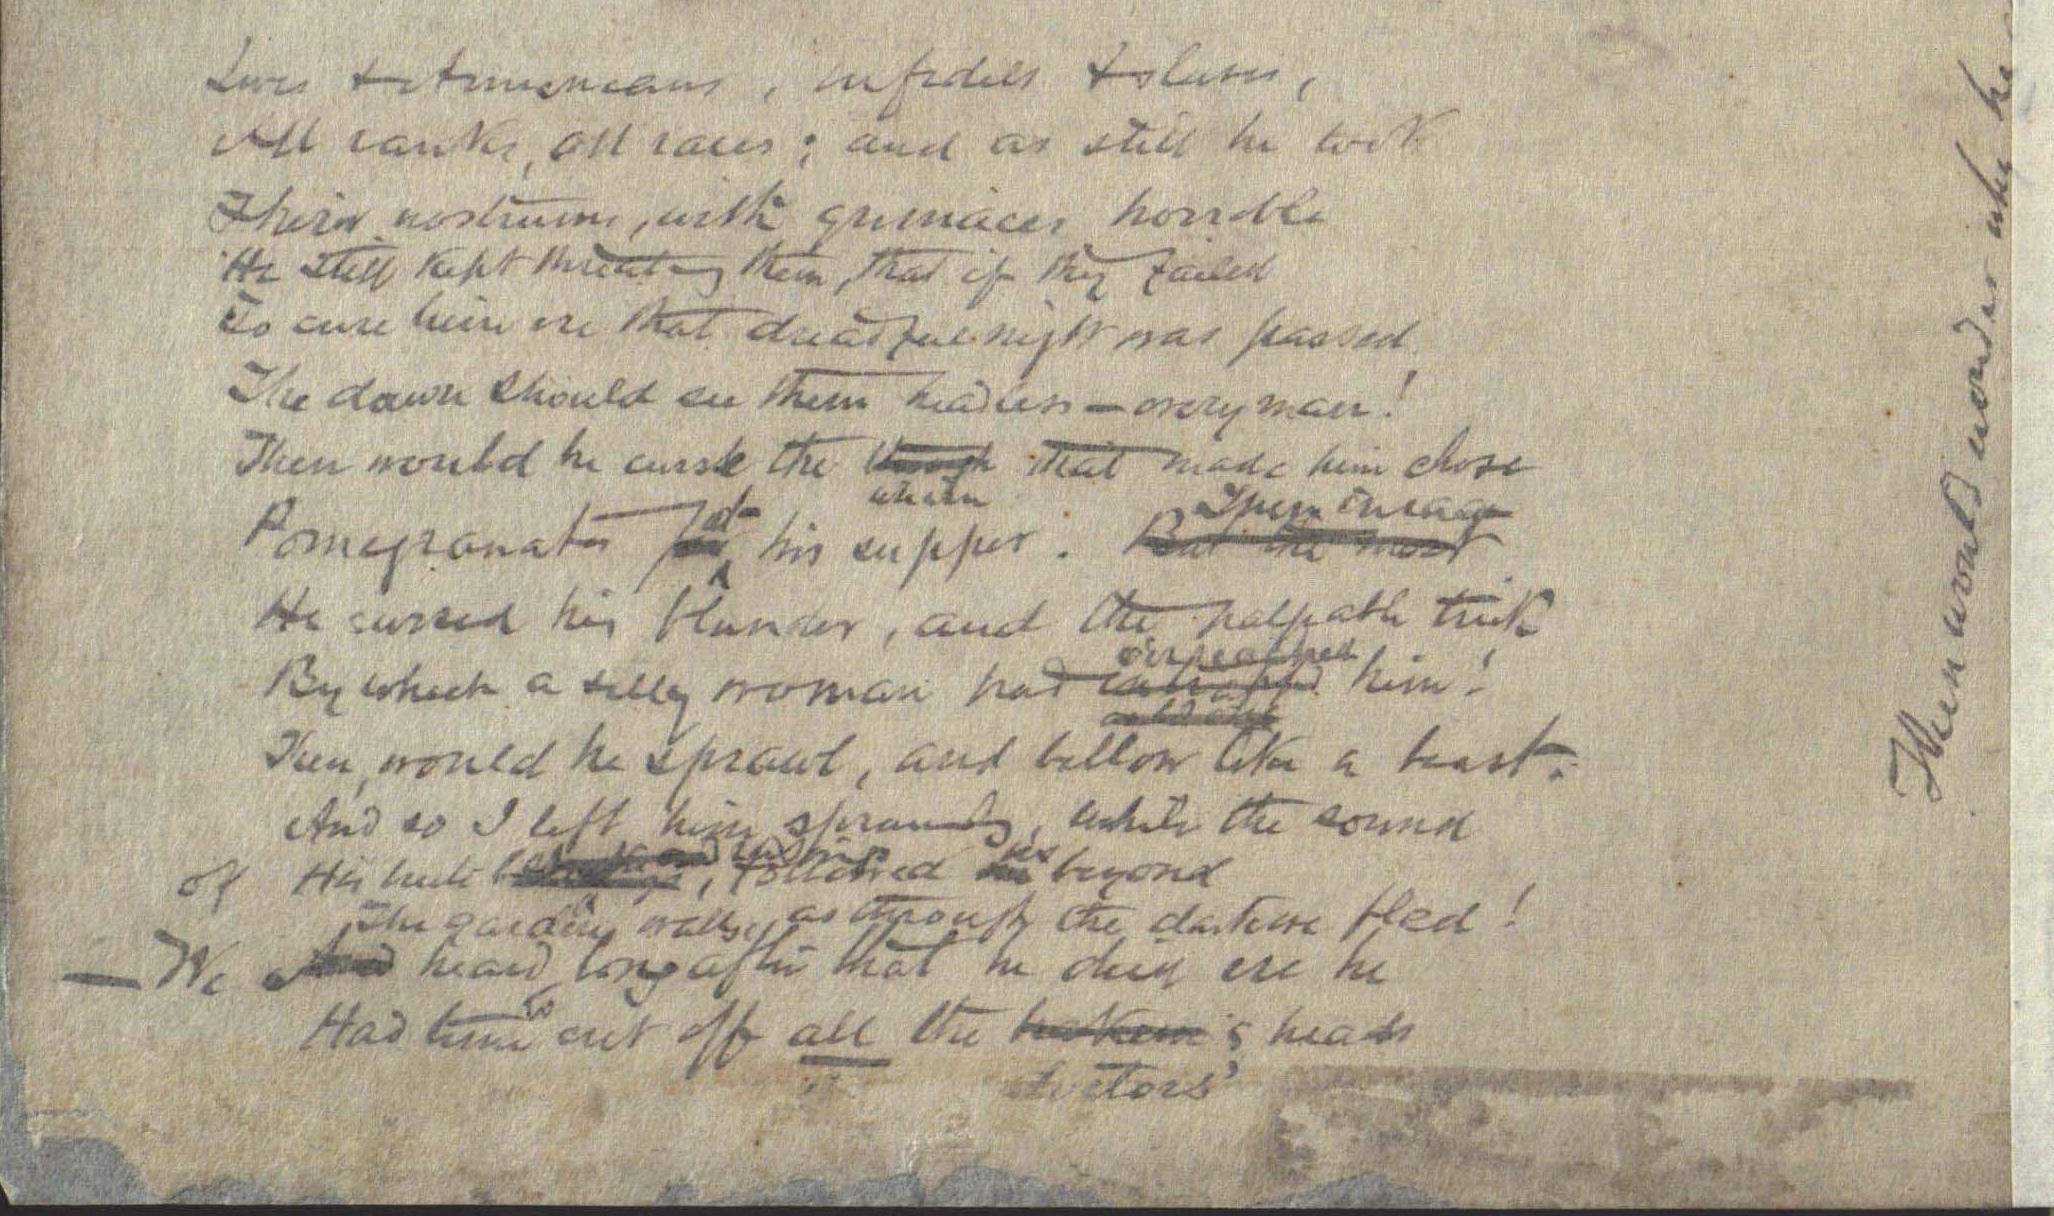 Jews & Armenians, infidels &
All ranks, all races; and as still he took
Their nostrums, with grimaces horrible
He still kept threatg them, that if they failed
To cure him ere that dreadful night was passed
The dawn should see them headless – every man!
Then would he curse the though that made him chose
whim
Pomegranates for at his supper. But the most
Then in rage
He cursed his blunder, and the palpable trick
o'erreached
By which a silly woman had entrapped him!
Then would he sprawl, and bellow like a beast.
And so I left him sprawling, while the sound
of His followed beyond
The garden walls, as through the darkness fled!
— We And heard long after that he died ere he
Had time to cut off all the hakem's heads
doctors'
Then would wonder why he